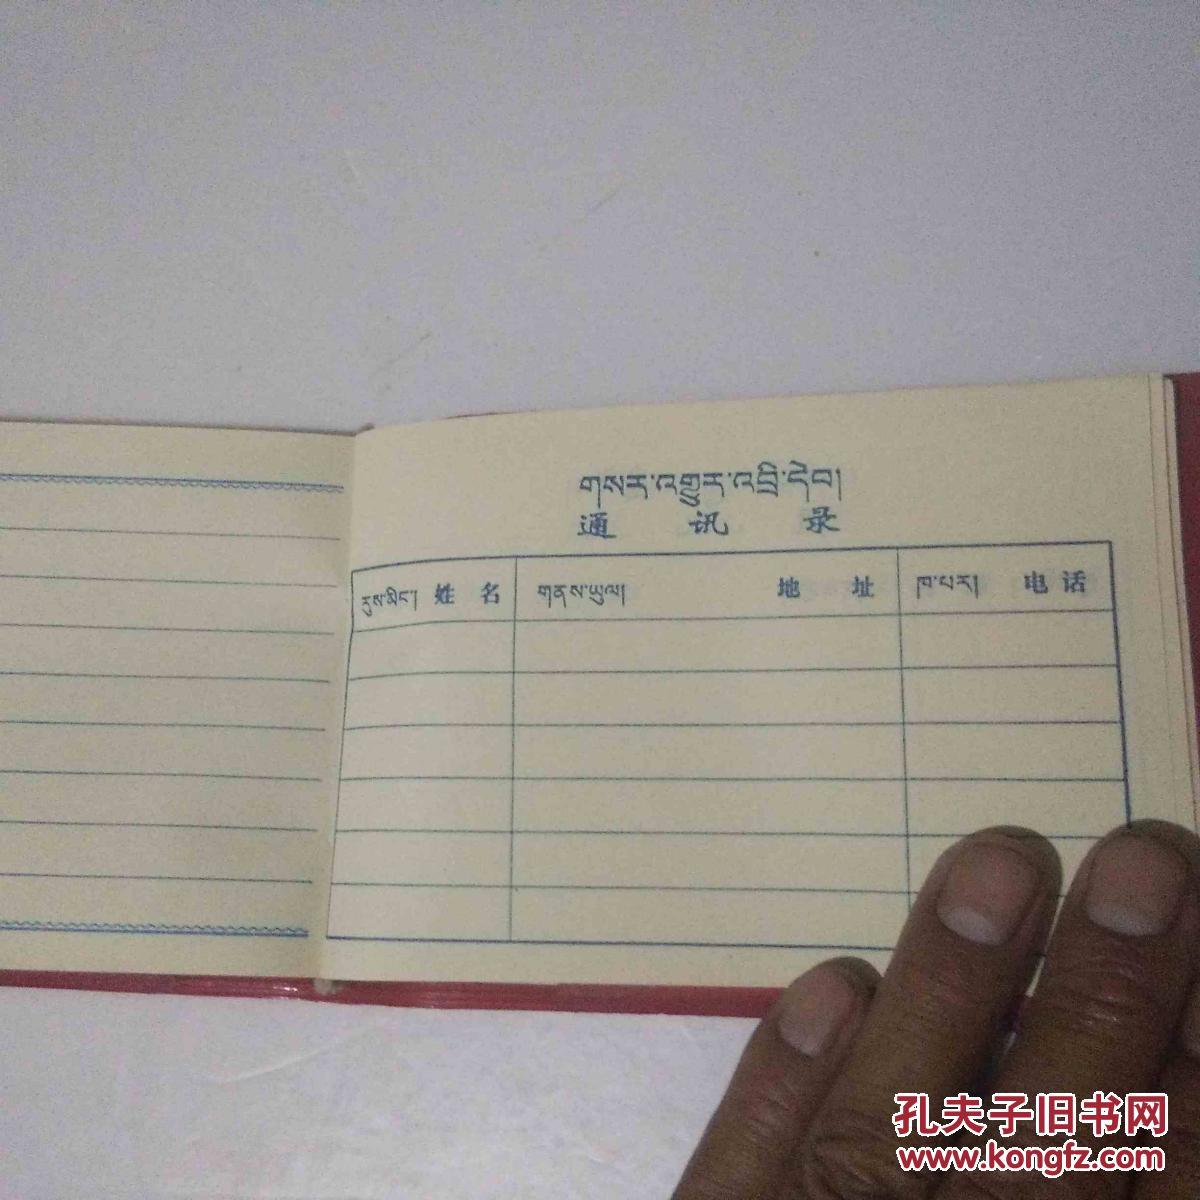 གསར་འགྱུར་འབྲི་དེབ།
通 讯 录
རུས་མིང་། 姓 名 གནས་ཡུལ། 地 址 ཁ་པར། 电 话
孔夫子旧书网
www.kongfz.com